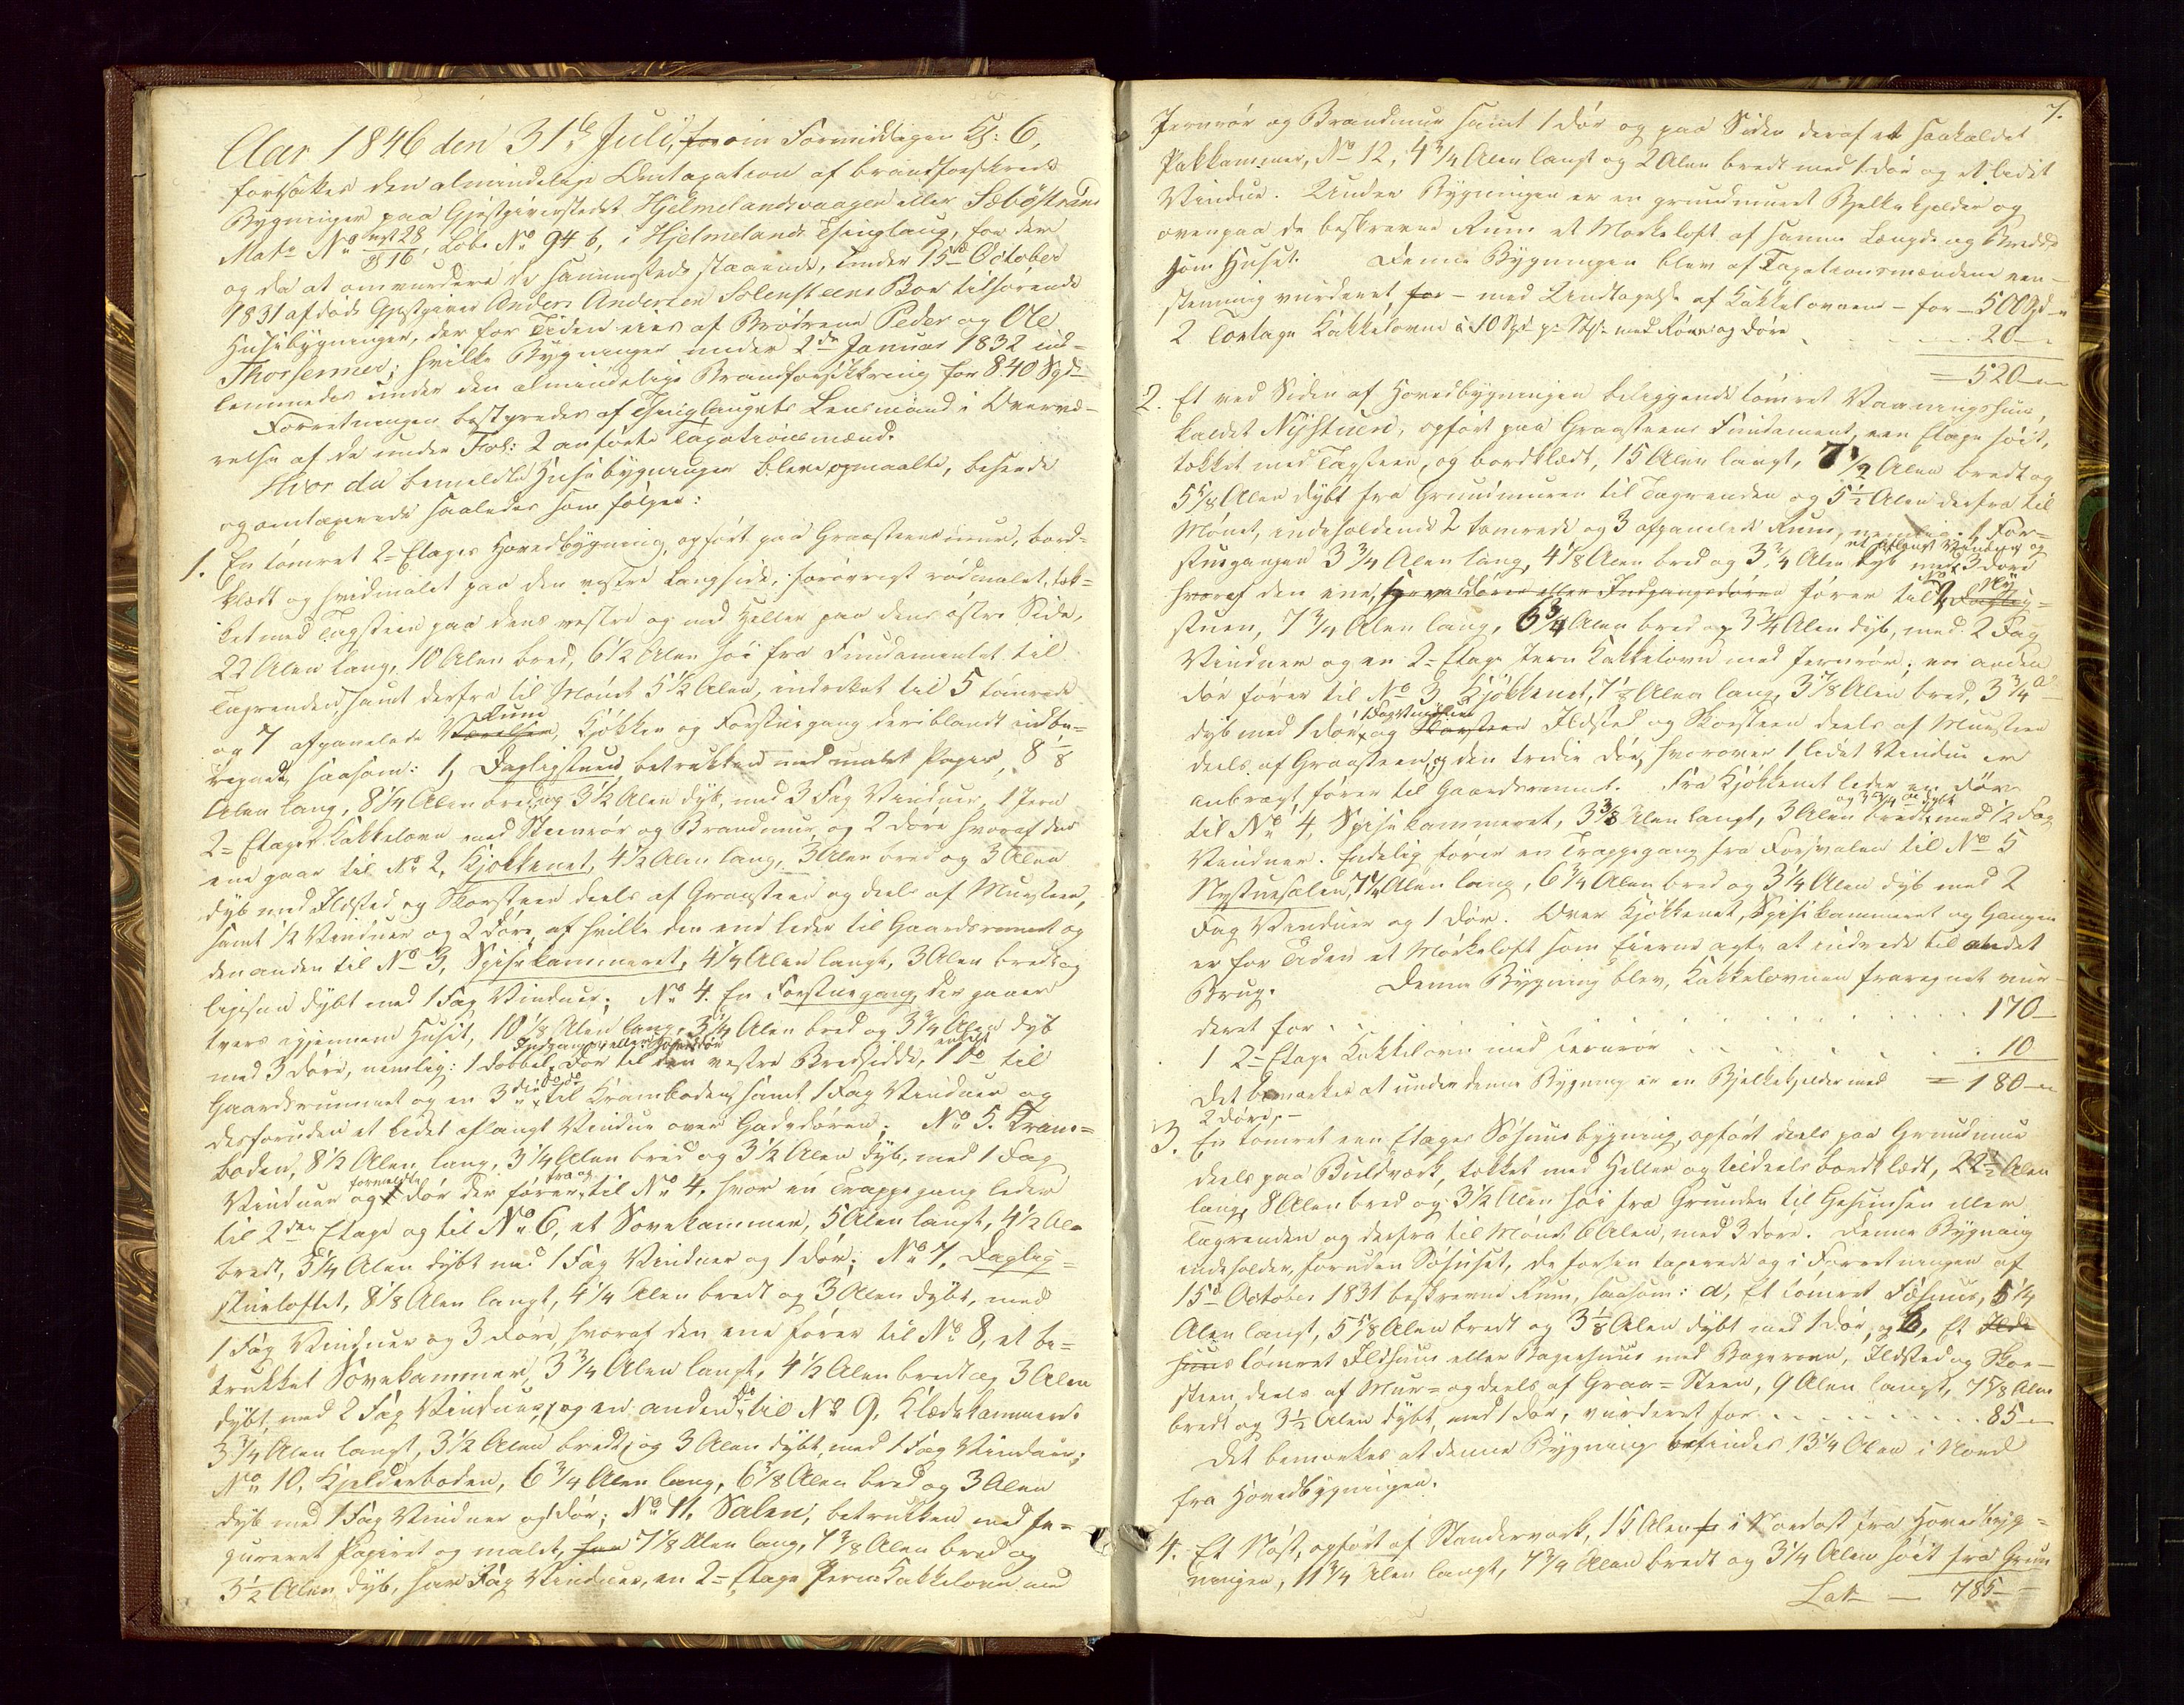 Aar 1846 den 31te Juli, for om Formiddagen Kl: 6,
forsattes den almindelige Omtaxation af brandforsikrede
Bygninger paa Gjestgiverstedet Hjelmelandsvaagen eller Sæbøstrand
Mat: No nyt 28 / gl 16, Løbe No 94 b, i Hjelmelands Thinglaug, for der
og da at omvurdere de sammesteds staaende, under 15de October
1831 afdøde Gjestgiver Anders Andersen Solensteens Boe tilhørende
Huusebygninger, der for Tiden eies af Brødrene Peder og Ole
Thorsenner; hvilke Bygninger under 2den Januar 1832 ind-
lemmedes under den almindelige Brandforsikkring for 840 Spd.
Forretningen bestyredes af Thinglaugets Lensmand i Overvæ-
relse af de under Fol: 2 anførte Taxationsmænd.
Hvor da bemeldte Huusebygninger bleve opmaalte, beseede
og omtaxerede saaledes som følger:
1. En tømret 2 Etages Hovedbygning, opført paa Graasteensmuur, bord-
klædt og hvidmalet paa den vestre Langside, forøvrigt rødmalet, tæk-
ket med Tagsteen paa dens vestre og med Heller paa dens østre Side,
22 Alen lang, 10 Alen bred, 6 1/2 Alen høi fra Fundamentet til
Tagrenden, samt derfra til Mønet 5 1/2 Alen, indrettet til 5 tømrede
og 7 afpanelede Værelser Rum, Kjøkken og Forstuegang deriblandt indbe-
regnede, saasom: 1, Dagligstuen, betrukken med malet Papir, 8 1/8
Alen lang, 8 1/4 Alen bred og 3 1/2 Alen dyb, med 3 Fag Vinduer, 1 Jern
2 Etages Kakkelovn med Steenrør og Brandmuur, og 2 Døre hvoraf den
ene gaar til No 2, Kjøkkenet, 4 1/2 Alen lang, 3 Alen bred og 3 Alen
dyb med Ildsted og Skorsteen deels af Graasteen og deels af Muursteen,
samt 1/2 Vinduer og 2 Døre, af hvilke den ene leder til Gaardsrummet og
den anden til No 3, Spisekammeret, 4 1/4 Alen langt, 3 Alen bredt og
ligesaa dybt med 1 Fag Vinduer; No 4. En Forstuegang, der gaaer
tvers igjennem Huset, 10 1/8 Alen lang, 3 1/4 Alen bred og 3 3/4 Alen dyb
med 3 Døre, nemlig: 1 dobbel Indgangs eller Hoveddør Dør til den vestre Bredside, 1 enkelt Do til
Gaardsrummet og en 3die Do Do til Kramboden, samt 1 Fag Vinduer og
desforuden et lidet aflangt Vindue over Gadedøren. No 5. Kram-
boden, 8 1/2 Alen lang, 3 1/4 Alen bred og 3 1/2 Alen dyb, med 1 Fag
Vinduer og 1 formeldte Dør der fører fra og til No 4, hvor en Trappegang leder
til 2den Etage og til No 6, et Sovekammer, 5 Alen langt, 4 1/2 Al
bredt, 3 1/4 Alen dybt med 1 Fag Vinduer og 1 Dør; No 7, Daglig-
stueloftet, 8 1/8 Alen langt, 4 1/4 Alen bredt og 3 Alen dybt, med
1 Fag Vinduer og 3 Døre, hvoraf den ene fører til No 8, et be-
trukket Sovekammer, 3 3/4 Alen langt, 4 1/2 Alen bredt og 3 Alen
dybt, med 2 Fag Vinduer, og en anden Do til No 9, Klædekammeret
3 3/4 Alen langt, 3 1/2 Alen bredt, og 3 Alen dybt, med 1 Fag Vinduer;
No 10, Kjelderboden, 6 3/4 Alen lang, 6 3/8 Alen bred og 3 Alen
dyb med 1 Fag Vinduer og Dør; No 11, Salen, betrukken med fi-
gureret Papiret og malet, har 7 1/8 Alen lang, 7 3/8 Alen bred og
3 1/2 Alen dyb, har Fag Vinduer, en 2 Etage Jern Kakkelovn med
7.
Jernrør og Brandmuur samt 1 Dør og paa Siden deraf et saakaldet
Pakkammer, No 12, 4 3/4 Alen langt og 2 Alen bredt med 1 Dør og et lidet
Vindue. Under Bygningen er en grundmuret Bjelkekjelder og
ovenpaa de beskrevne Rum et Mørkeloft af samme Længde og Bredde
som Huset. Denne Bygningen blev af Taxationsmændene een-
stemmig vurderet for - med Undtagelse af Kakkelovnene - for - 500 Spd
2 Toetages Kakkelovne à 10 Spd pr Stk. med Rør og Døre . . . 20
= 520
2. Et ved Siden af Hovedbygningen beliggende tømret Vaaningshuus,
kaldet Nystuen, opført paa Graasteens Fundament, een Etage høit,
tækket med Tagsteen, og bordklædt, 15 Alen langt, 7 1/2 Alen bredt og
5 5/8 Alen dybt fra Grundmuren til Tagrenden og 5 1/2 Alen derfra til
Mønet, indeholdende 2 tømrede og 3 afpanelede Rum, nemlig: 1, For-
stuegangen 3 3/4 Alen lang, 4 1/8 Alen bred og 3 3/4 Alen dyb med et aflangt Vindue og 3 Døre
hvoraf den ene, Hoveddøren eller Indgangsdøren fører til No 2, Daglig- Ny-
stuen, 7 3/4 Alen lang, 6 3/4 Alen bred og 3 3/4 Alen dyb, med 2 Fag
Vinduer og en 2 Etage Jern Kakkelovn med Jernrør; en anden
Dør fører til No 3, Kjøkkenet, 7 1/2 Alen lang, 3 7/8 Alen bred, 3 3/4 Al
dyb med 1 Dør, 1 Fag Vinduer og Skorsteen Ildsted og Skorsteen deels af Muursteen
deels af Graasteen, og den tredie Dør, hvorover 1 lidet Vindue er
anbragt, fører til Gaardsrummet. Fra Kjøkkenet leder en Dør
til No 4, Spisekammeret, 3 3/8 Alen langt, 3 Alen bredt og 3 3/4 Al dybt med 1/2 Fag
Vinduer. Endelig fører en Trappegang fra Forsvalen til No 5
Nystuesalen, 7 1/4 Alen lang, 6 3/4 Alen bred og 3 1/4 Alen dyb med 2
Fag Vinduer og 1 Dør. Over Kjøkkenet, Spisekammeret og Gangen
er for Tiden et Mørkeloft som Eierne agte at indrede til andet
Brug. Denne Bygning blev, Kakkelovnen fraregnet vur-
deret for . . . 170
1 2 Etage Kakkelovn med Jernrør . . . 10
Det bemærkes at under denne Bygning er en Bjelkekjelder med = 180
2 Døre. -
3. En tømret een Etages Søhuusbygning, opført deels paa Grundmuur
deels paa Buldværk, tækket med Heller og tildeels bordklædt, 22 1/2 Alen
lang, 8 Alen bred og 3 1/2 Alen høi fra Grunden til Gesimsen eller
Tagrenden og derfra til Mønet 6 Alen, med 3 Døre. Denne Bygning
indeholder, foruden Søhuset, de forhen taxerede og i Forretningen af
15de October 1831 beskrevne Rum, saasom: a, Et tømret Fæhuus, 5 1/4
Alen langt, 5 5/8 Alen bredt og 3 1/8 Alen dybt med 1 Dør, og b, Et Ild-
huus tømret Ildhuus eller Bagerhuus med Bagerovn, Ildsted og Skor-
steen, deels af Muur- og deels af Graa-Steen, 9 Alen langt, 7 5/8 Alen
bredt og 3 1/2 Alen dybt, med 1 Dør, vurderet for . . . 85
Det bemærkes at denne Bygning befindes 13 1/4 Alen i Nord
fra Hovedbygningen.
4. Et Nøst, opført af Standerværk, 15 Alen fr i Nordost fra Hovedbyg-
ningen, 11 3/4 Alen langt, 7 3/4 Alen bredt og 3 1/4 Alen høit fra Grun
Lat - 785